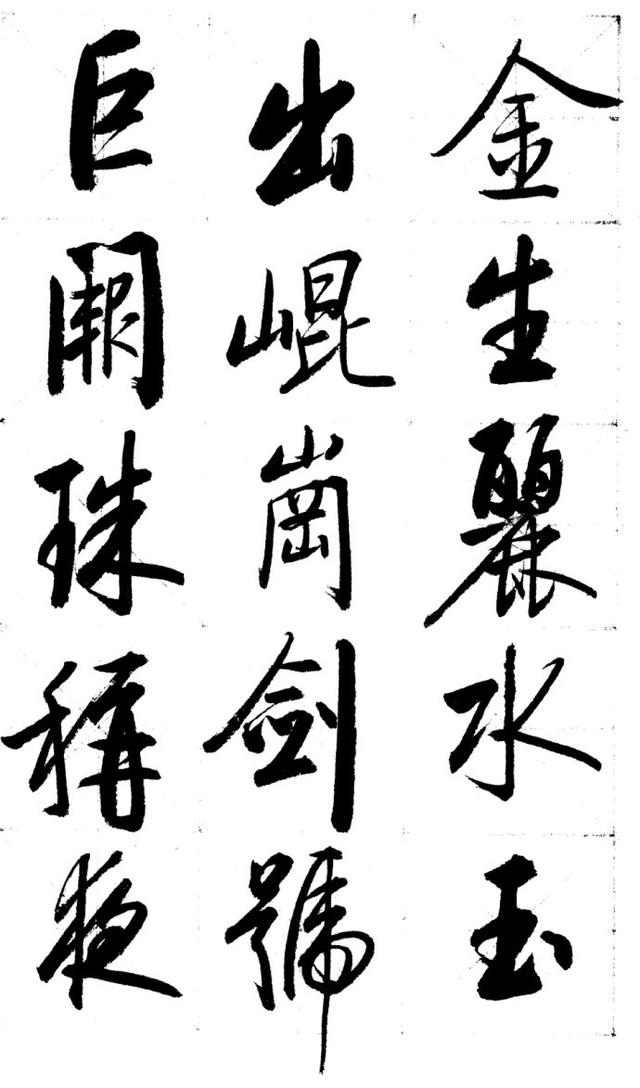 金生麗水玉
出崐崗劍號
巨闕珠稱夜